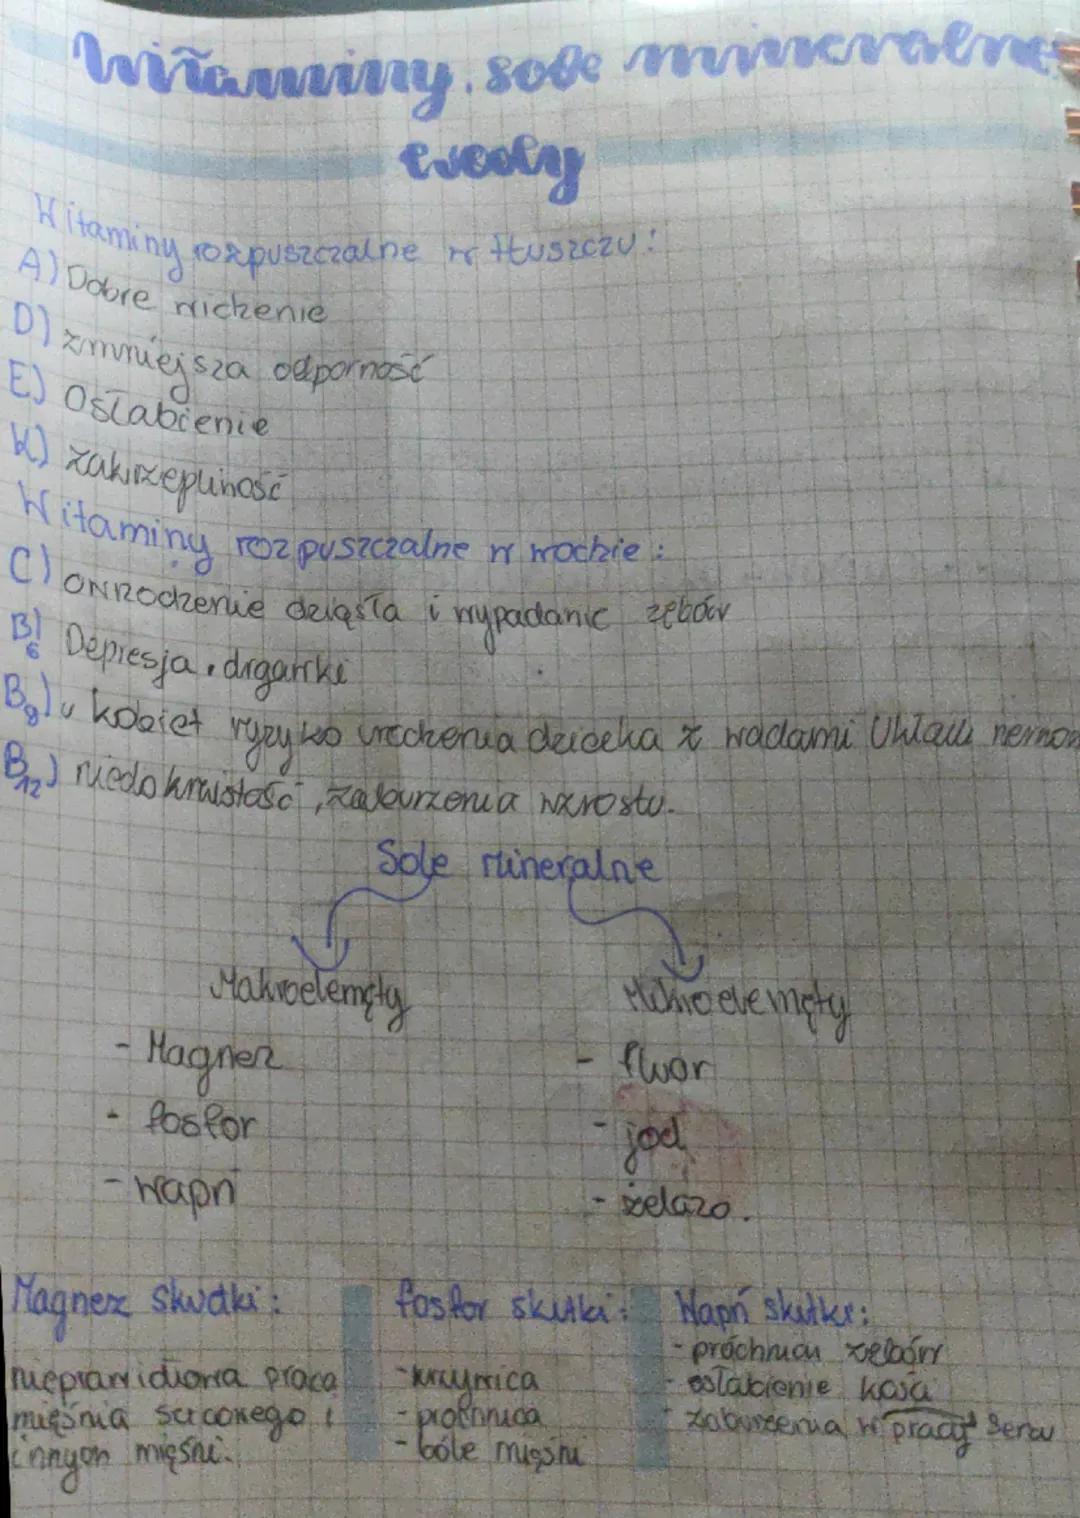 Witaminy, sole mineralne
wody
Witaminy rozpuszczalne w tłuszczu:
A) Dobre widzenie
D) zmniejsza odporność
E) Osłabienie
K) zakrzepliwość
Witaminy rozpuszczalne w wodzie:
C) dziąsła i wypadanie zębów
B6) Depresja, drgawki
B9) u kobiet ryzyko urodzenia dziecka z wadami Układu nerwow
B12) niedokrwistość, zaburzenia wzrostu.
Sole mineralne
Makroelemęty Mikroelemęty
- Magnez - fluor
- fosfor - jod
- wapń - żelazo.
Magnez skutki: fosfor skutki: Wapń skutki:
- próchnica zębów
nieprawidłowa praca - krzywica - osłabienie kości
mięśnia sercowego i - próchnica - zaburzenia w pracy serca
innych mięśni. - bóle mięśni